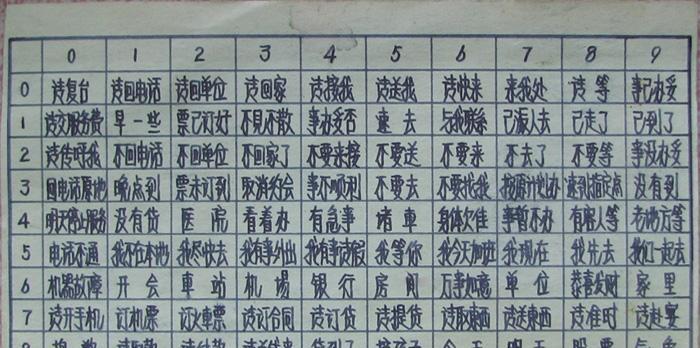 0 1 2 3 4 5 6 7 8 9
0 请复台 请回电话 请回单位 请回家 请接我 请送我 请快来 来我处 请等 事已办妥
1 请交服务费 早一些 票已订好 不见不散 事办妥否 速去 与我联系 已派人去 已走了 已到了
2 请传呼我 不回电话 不回单位 不回家了 不要来接 不要送 不要来 不去了 不要等 事没办妥
3 回电话原地 晚点到 票未订到 取消约会 事不顺利 不要去 不要找我 按原计划办 速到指定点 没有到
4 明天停止服务 没有货 医院 看着办 有急事 堵車 身体欠佳 事暂不办 有很人等 老地方等
5 电话不通 我不在本地 我尽快去 我有事外出 我有事请假 我等你 我今天加班 我现在 我先去 我们一起去
6 机器故障 开会 車站 机場 银行 房间 万事如意 单位 恭喜发财 家里
7 请开手机 订机票 订火車票 请订合同 请订货 请提货 请取東西 请送東西 请准时 请赴宴
8